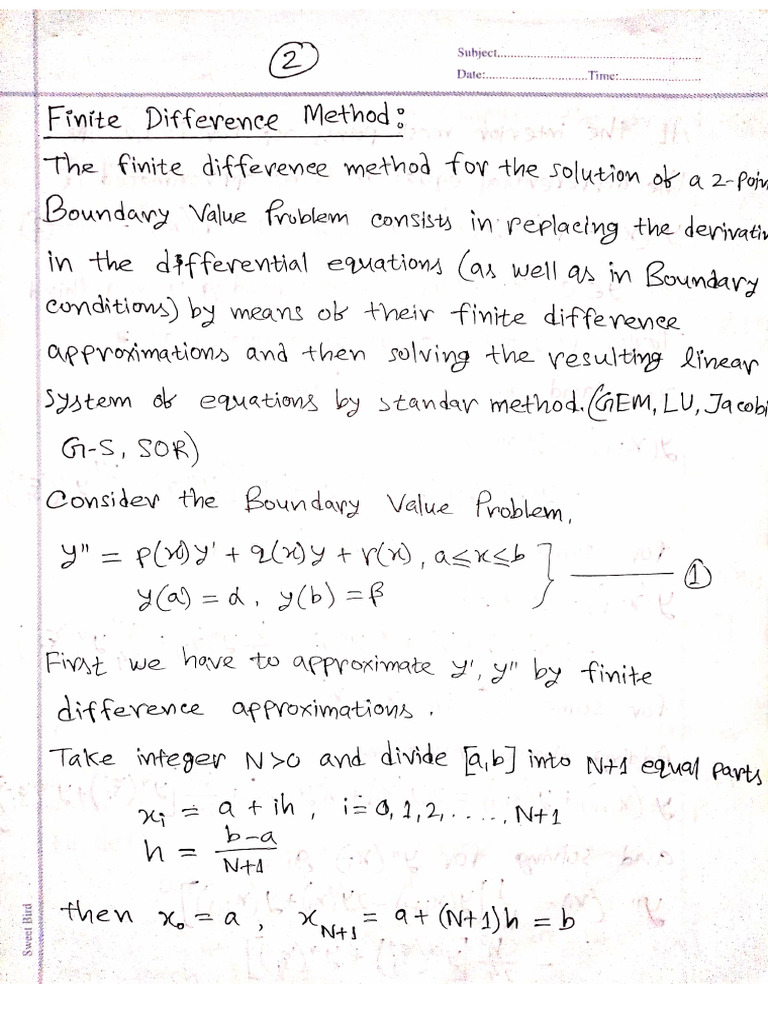 2
Subject
Date: Time:
Finite Difference Method:
The finite difference method for the solution of a 2-poin
Boundary Value Problem consists in replacing the derivativ
in the differential equations (as well as in Boundary
conditions) by means of their finite difference
approximations and then solving the resulting linear
system of equations by standar method. (GEM, LU, Jacobi
G-S, SOR)
Consider the Boundary Value Problem,
y'' = p(x)y' + q(x)y + r(x), a≤x≤b
y(a) = α, y(b) = β
①
First we have to approximate y', y'' by finite
difference approximations.
Take integer N>0 and divide [a,b] into N+1 equal parts
xᵢ = a + ih, i=0,1,2,....,N+1
h = (b-a)/(N+1)
then x₀ = a, x_{N+1} = a+(N+1)h = b
Sweet Bird